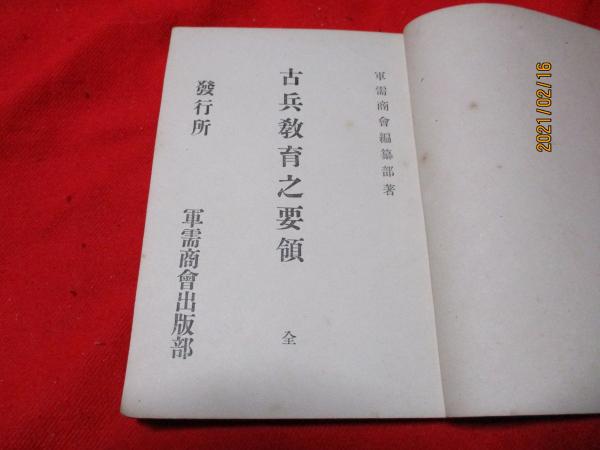 軍需商會編纂部著
古兵敎育之要領 全
發行所 軍需商會出版部
2021/02/16